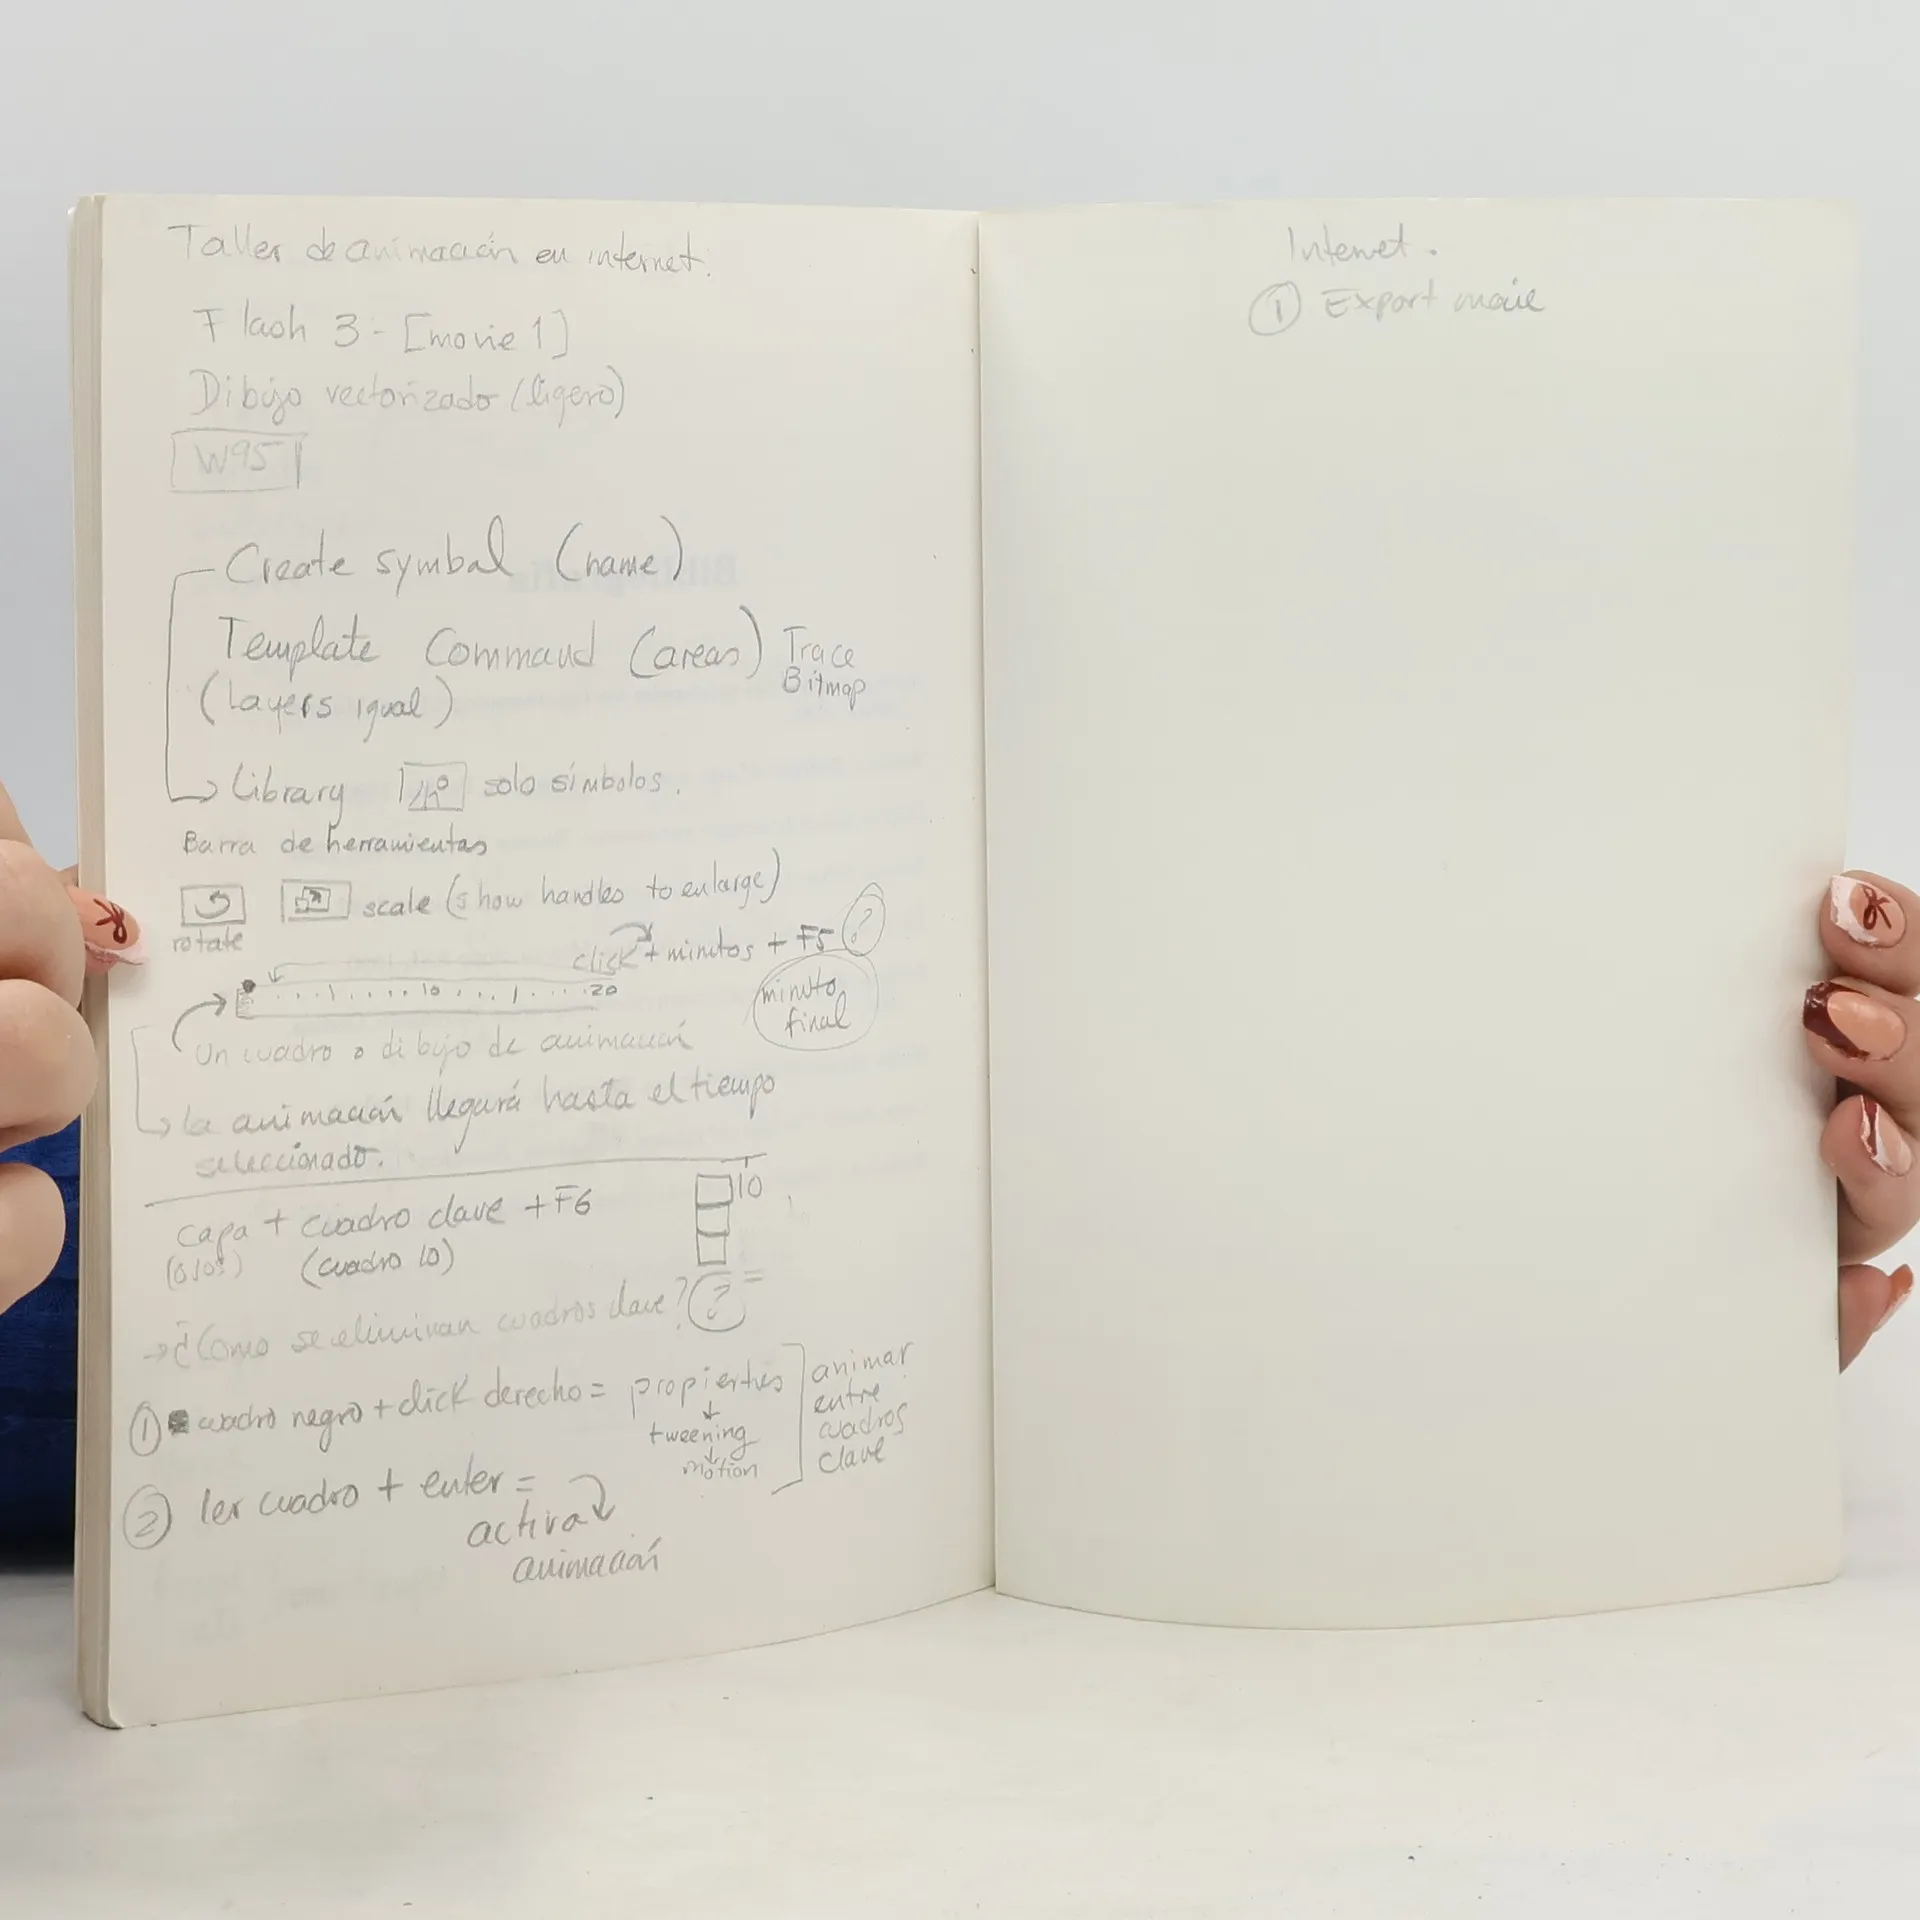 Taller de animación en internet.
Flash 3 - [movie 1]
Dibujo vectorizado (ligero)
W95
Create symbol (name)
Template Command (areas) Trace
Bitmap
(Layers igual)
Library solo símbolos.
Barra de herramientas
scale (show handles to enlarge)
rotate
click + minutos + F5 ?
10 20
minuto
final
Un cuadro o dibujo de animación
la animación llegará hasta el tiempo
seleccionado.
10
capa + cuadro clave + F6
(ojos) (cuadro 10)
→ ¿Como se eliminan cuadros clave? ? =
① cuadro negro + click derecho = propierties
↓
tweening
↓
motion
animar
entre
cuadros
clave
② 1er cuadro + enter =
activa
animación
Internet.
① Export movie